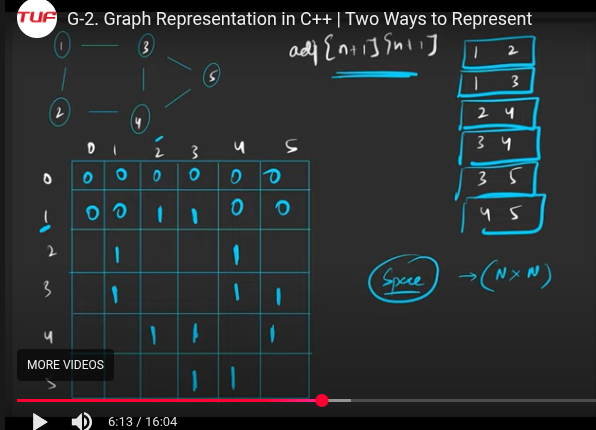 TUF G-2. Graph Representation in C++ | Two Ways to Represent
1 3
5
2 4
adj[n+1][n+1]
1 2
1 3
2 4
3 4
3 5
4 5
0 1 2 3 4 5
0 0 0 0 0 0 0
1 0 0 1 1 0 0
2 1 1
3 1 1 1
4 1 1 1
5 1 1
Space → (N x N)
MORE VIDEOS
6:13 / 16:04